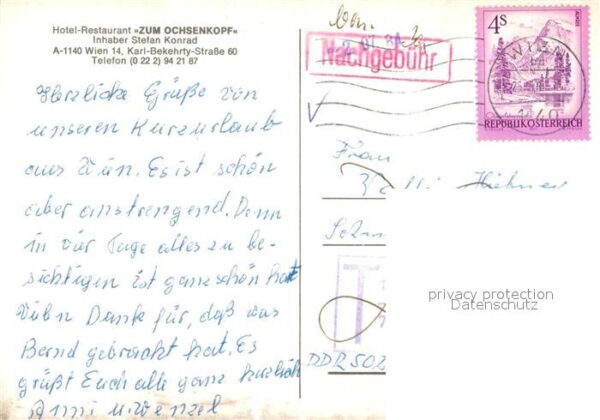 Hotel-Restaurant »ZUM OCHSENKOPF«
Inhaber Stefan Konrad
A-1140 Wien 14, Karl-Bekehrty-Straße 60
Telefon (0 22 2) 94 21 87
Herzliche Grüße von
unseren Kurzurlaub
aus Wien. Es ist schön
aber anstrengend. Denn
in vier Tage alles zu be-
sichtigen ist ganz schön hart
Vielen Dank für, daß was
Bernd gebracht hat. Es
grüßt Euch alle ganz herzlich
Anni u. Wenzel
Nachgebühr
4S
WIEN
1140
REPUBLIK ÖSTERREICH
Frau
T
DDR 502
privacy protection
Datenschutz